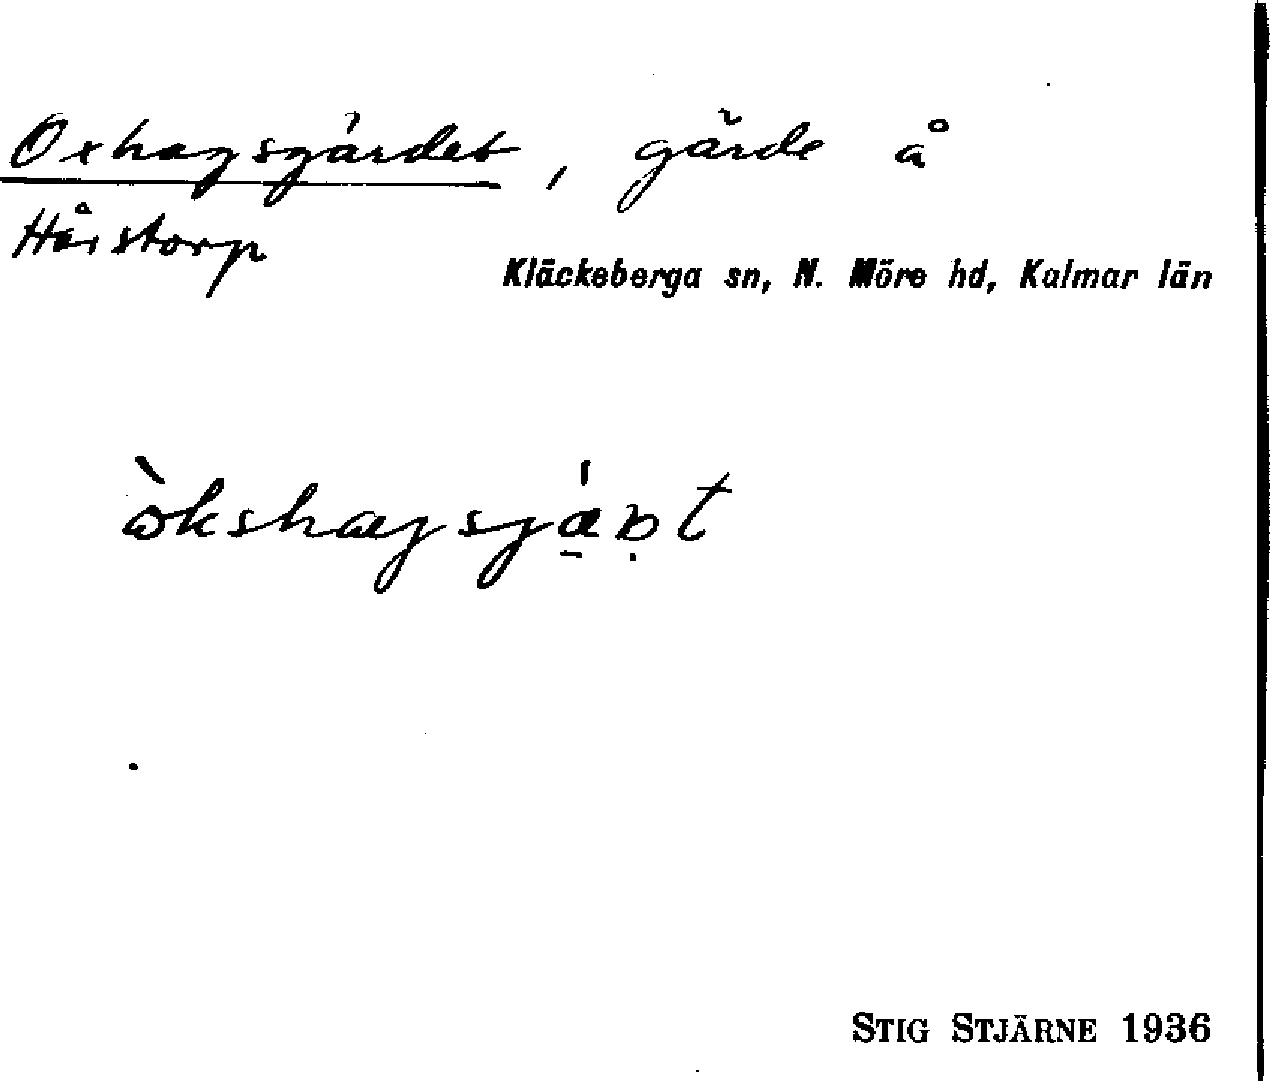 Oxhagsgärdet, gärde å
Hårstorp
Kläckeberga sn, N. Möre hd, Kalmar län
STIG STJÄRNE 1936